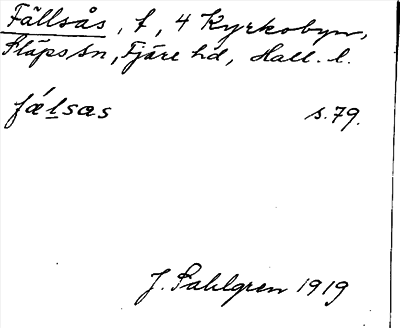 Fällsås, f, 4 Kyrkobyn,
Släps sn, Fjäre hd, Hall. l.
fǽlsas s. 79.
J. Sahlgren 1919